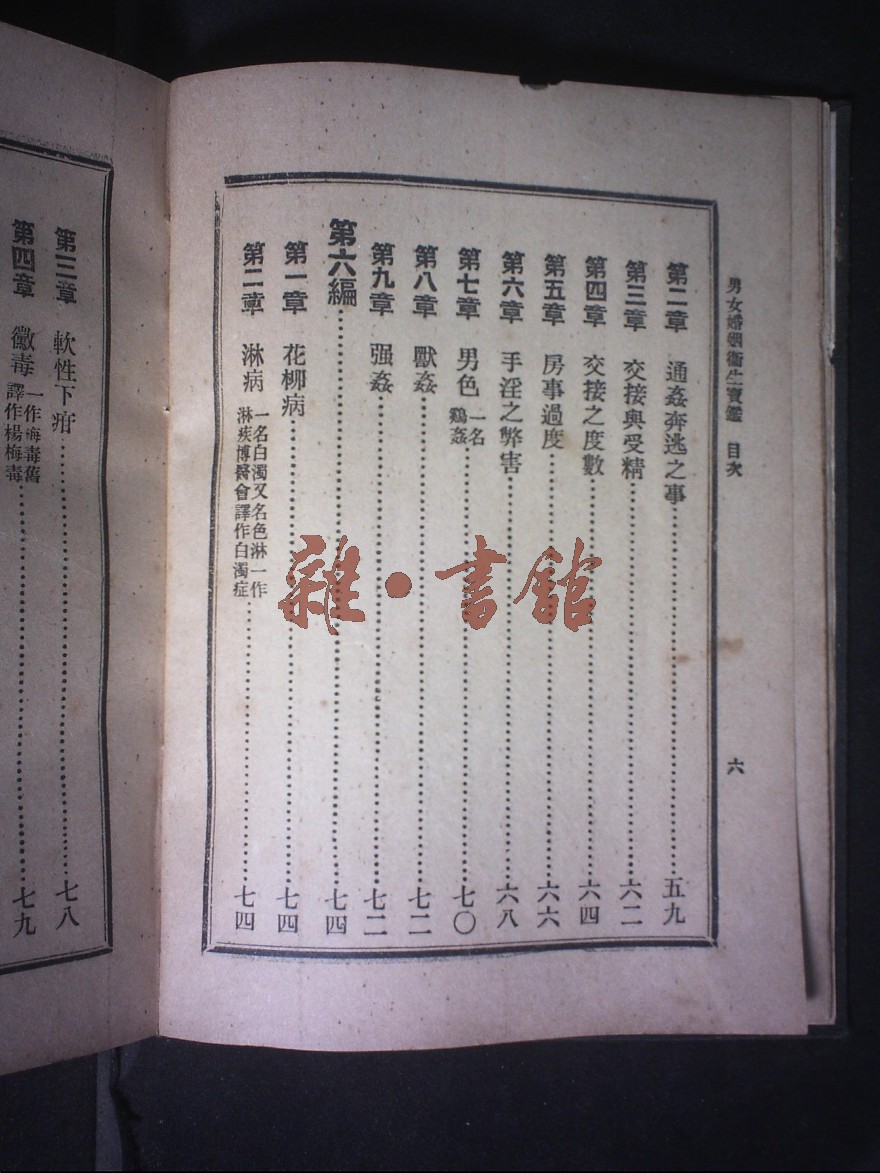 男女婚姻衞生寶鑑 目次
六
第二章 通姦奔逃之事 五九
第三章 交接與受精 六二
第四章 交接之度數 六四
第五章 房事過度 六六
第六章 手淫之弊害 六八
第七章 男色 一名鷄姦 七〇
第八章 獸姦 七二
第九章 强姦 七二
第六編 七四
第一章 花柳病 七四
第二章 淋病 一名白濁又名色淋一作淋疾博醫會譯作白濁症 七四
第三章 軟性下疳 七八
第四章 黴毒 一作梅毒舊譯作楊梅毒 七九
雜·書館